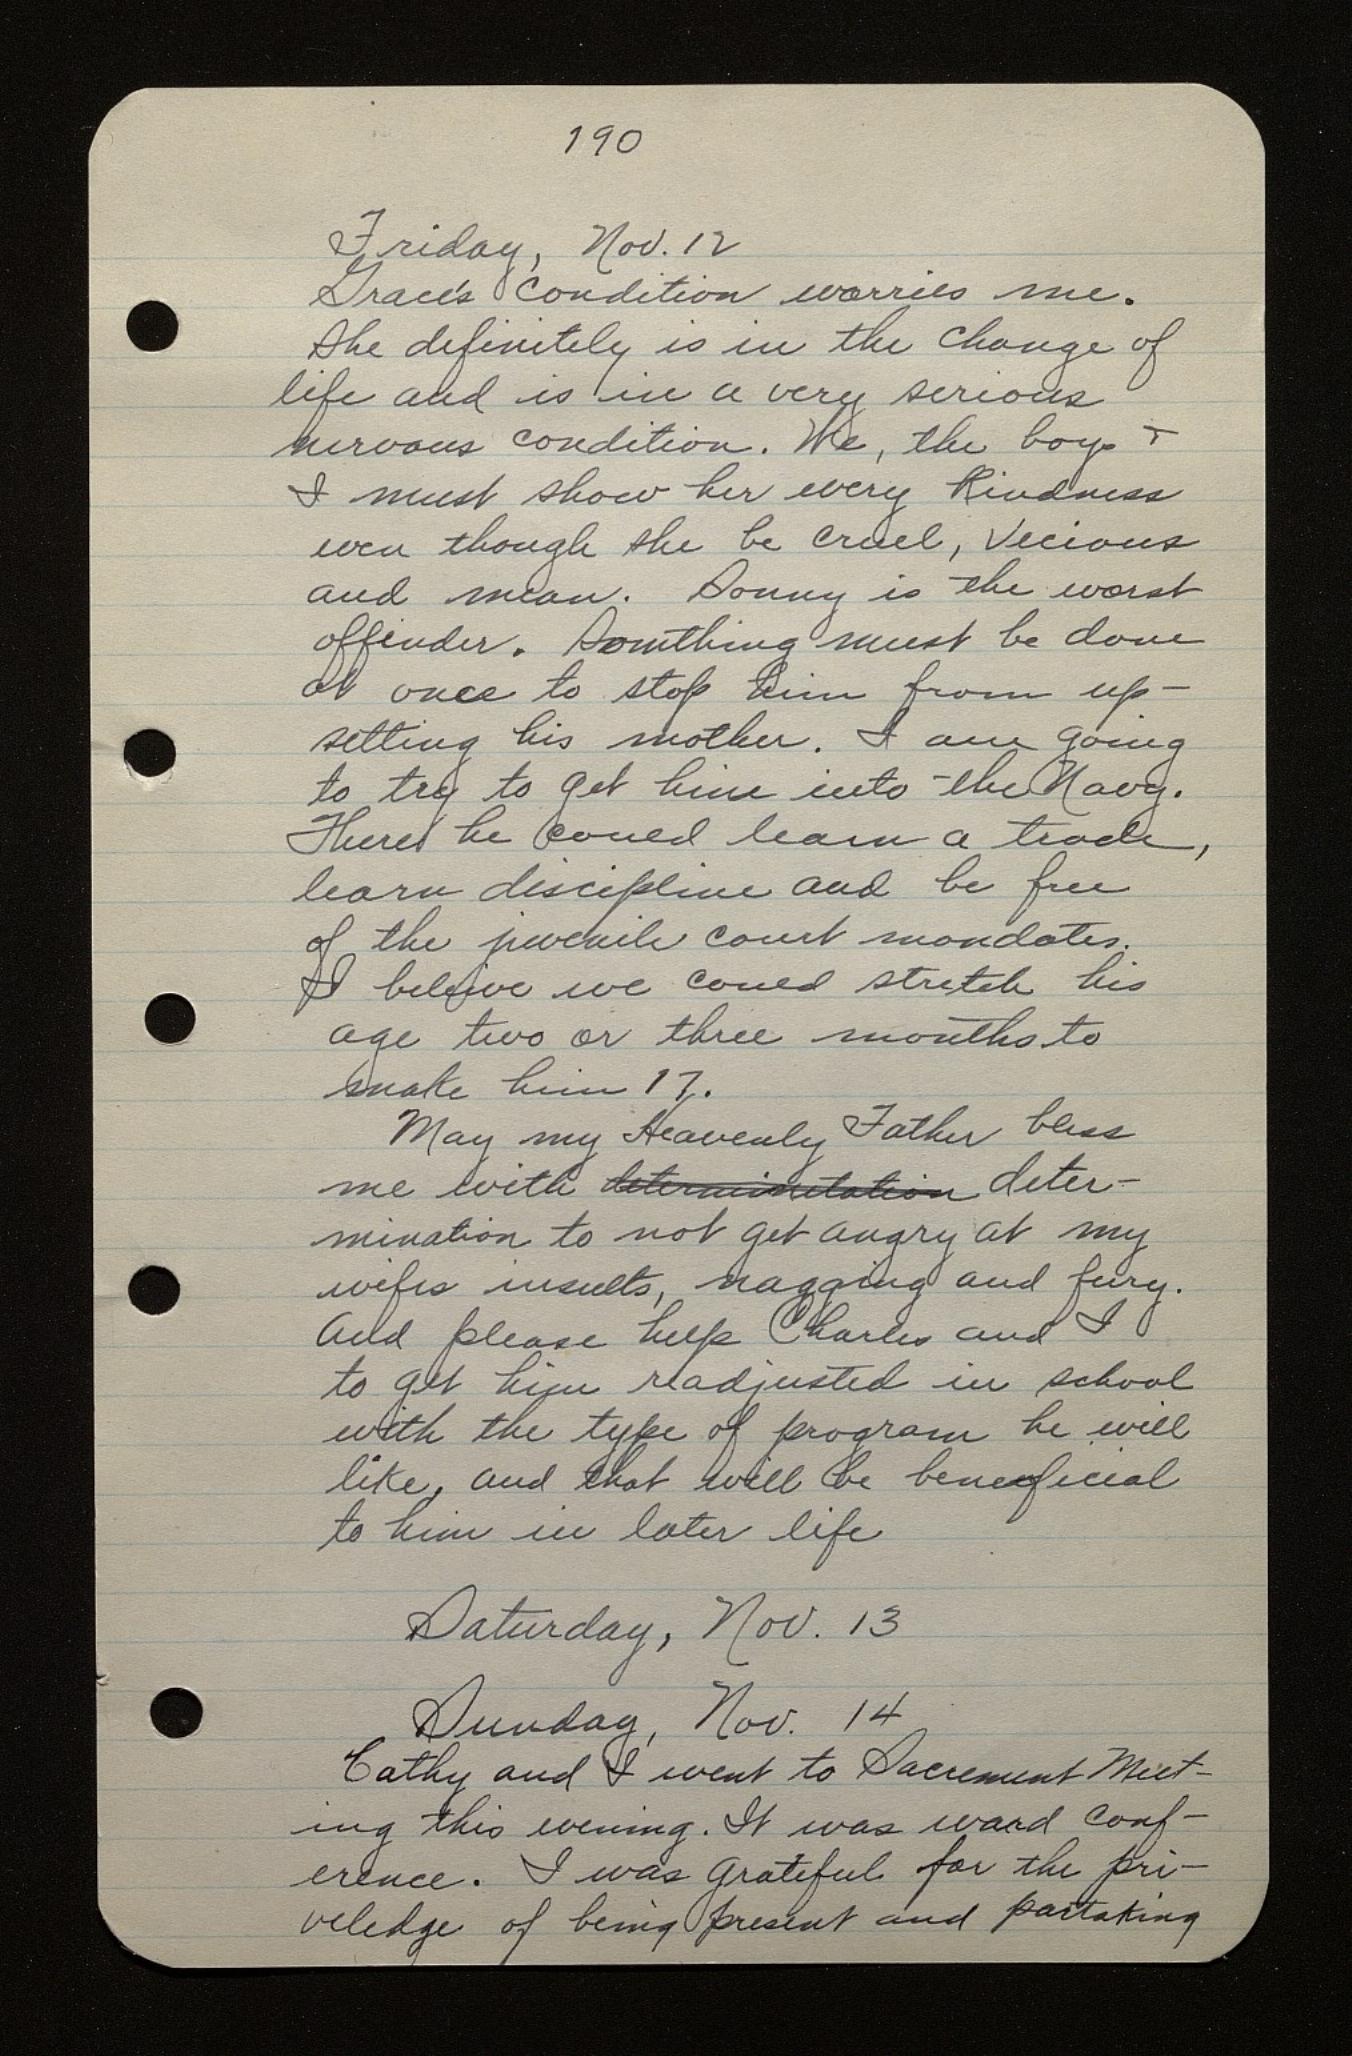 190
Friday, Nov. 12
Grace's condition worries me.
She definitely is in the change of
life and is in a very serious
nervous condition. We, the boys +
I must show her every kindness
even though she be cruel, vicious
and mean. Sonny is the worst
offender. Somthing must be done
at once to stop him from up-
setting his mother. I am going
to try to get him into the Navy.
There he could learn a trade,
learn discipline and be free
of the juvenile court mandates.
I beleive we could stretch his
age two or three months to
make him 17.
May my Heavenly Father bless
me with determinetation deter-
mination to not get angry at my
wifes insults, nagging and fury.
And please help Charles and I
to get him readjusted in school
with the type of program he will
like, and that will be beneficial
to him in later life
Saturday, Nov. 13
Sunday, Nov. 14
Cathy and I went to Sacrement Meet-
ing this evening. It was ward conf-
erence. I was grateful for the pri-
veledge of being present and partaking